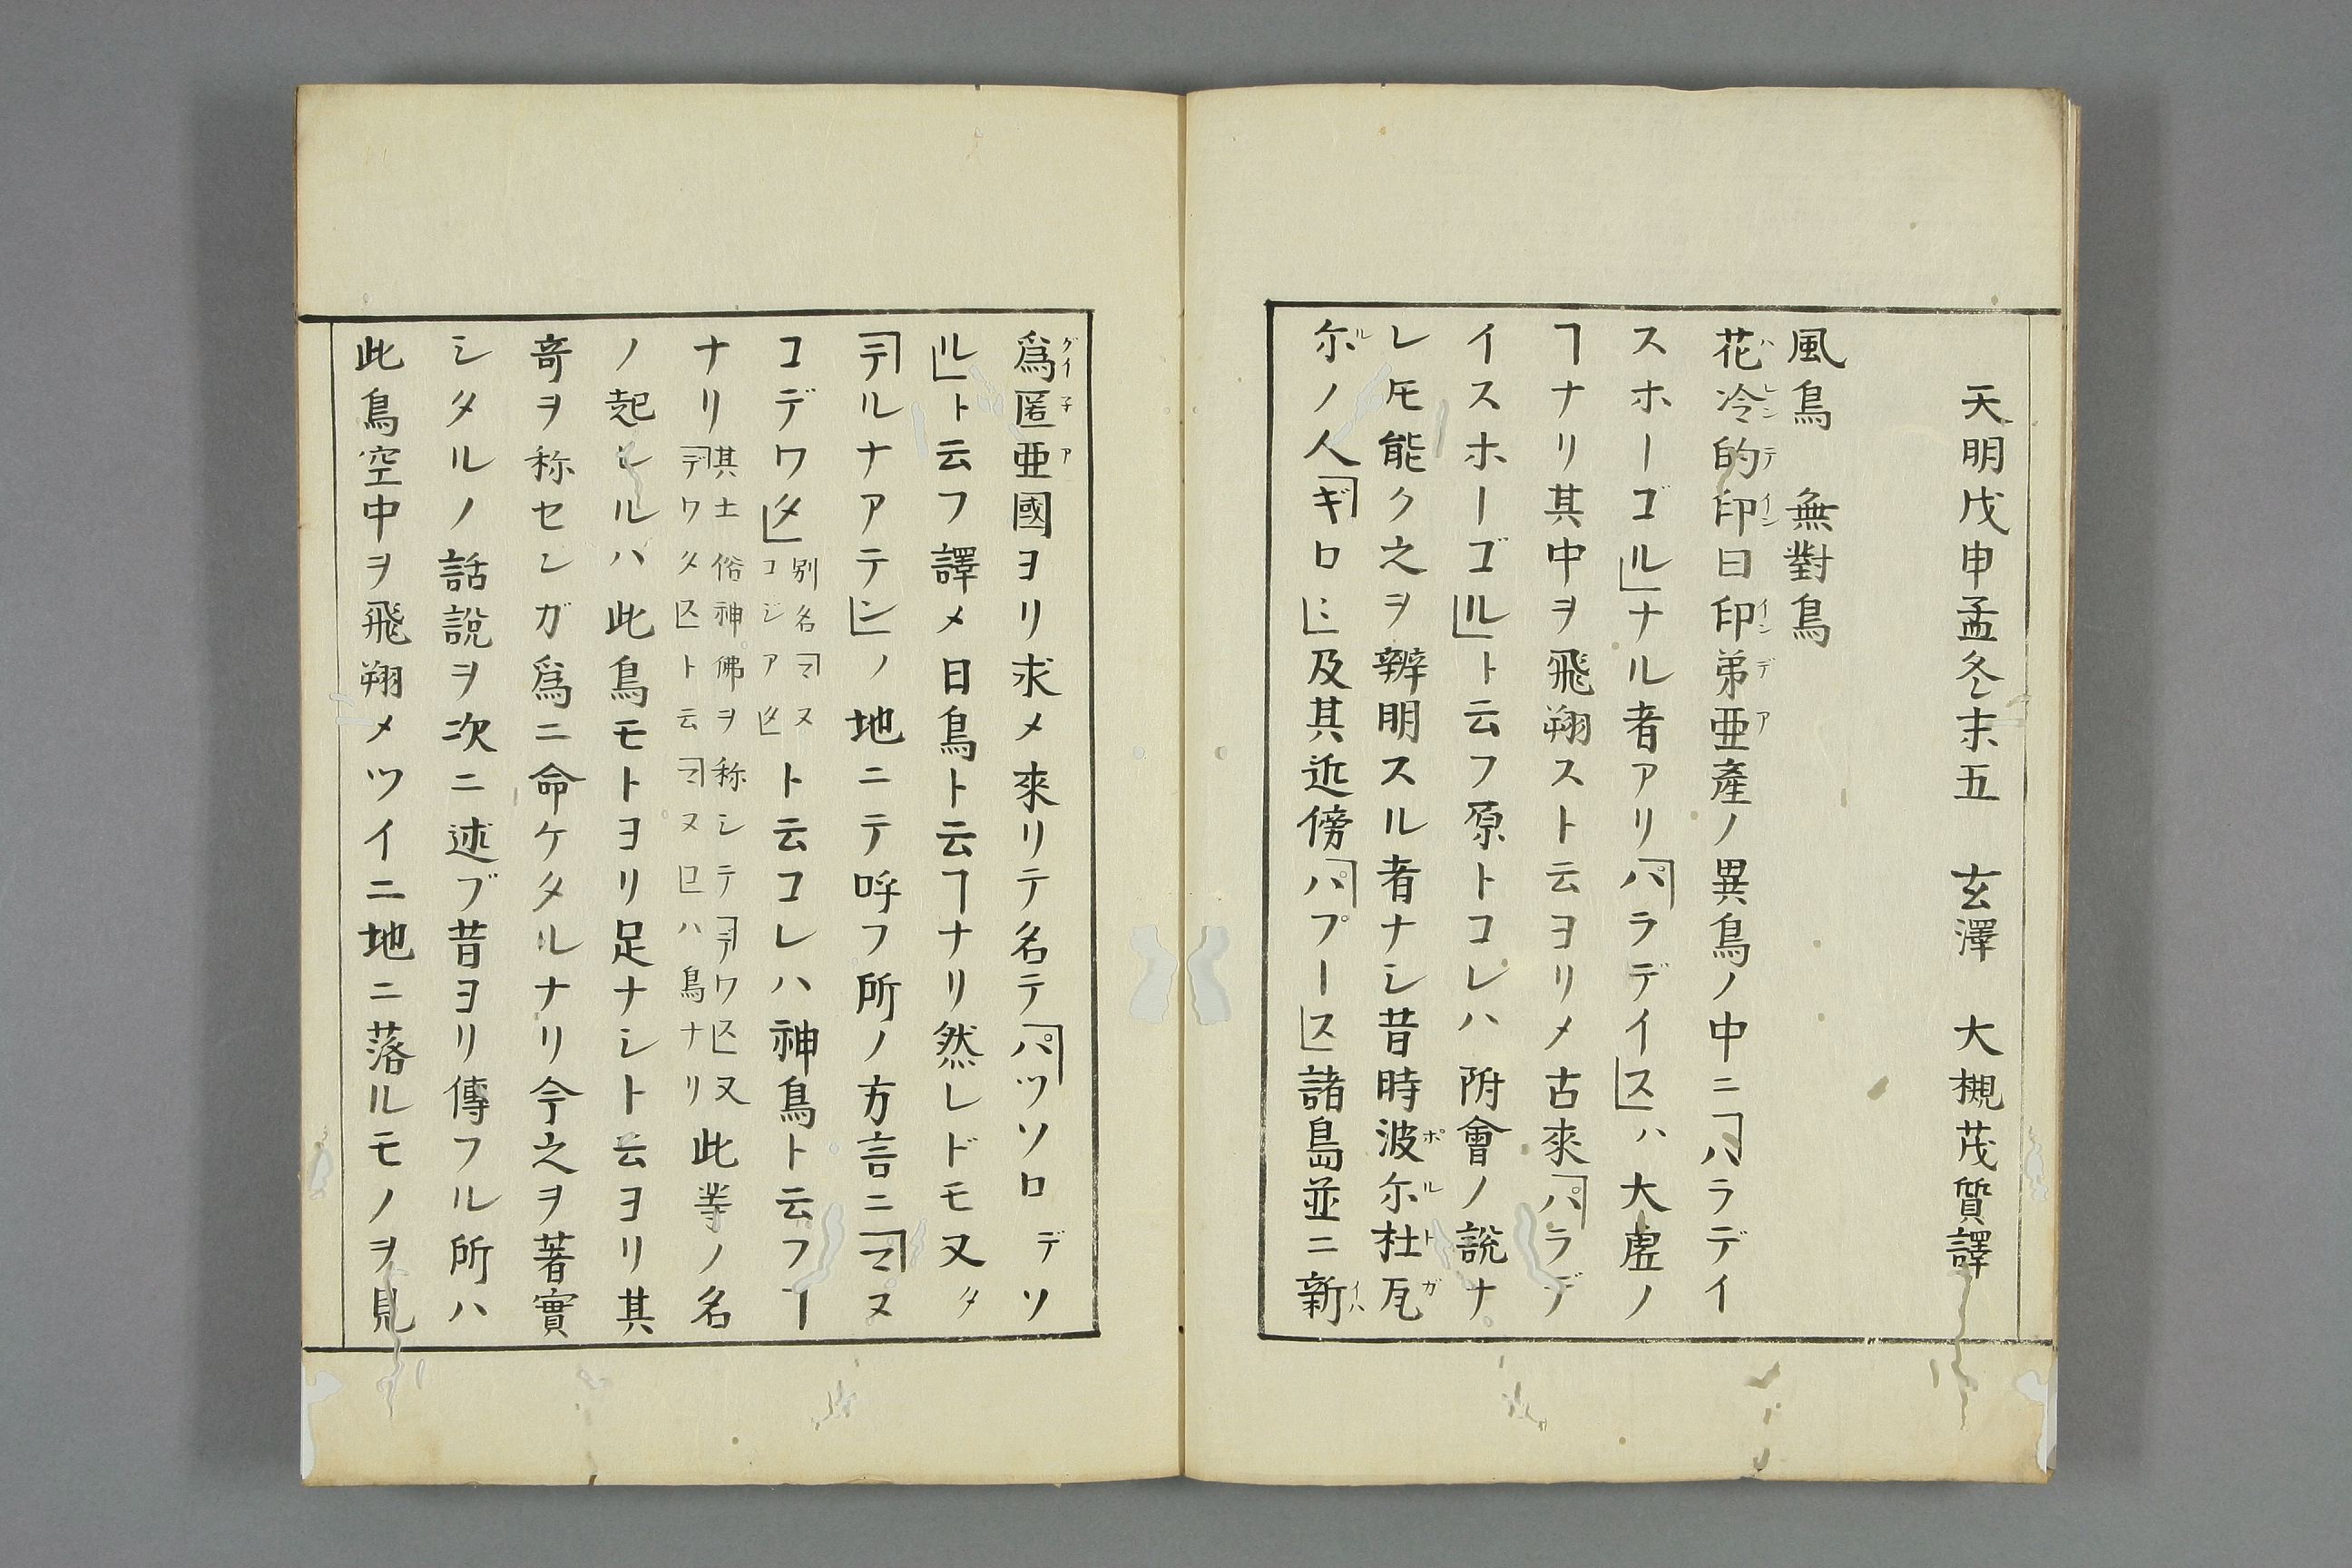 天明戊申孟冬末五　玄澤　大槻茂質譯
風鳥　無對鳥
花冷的印曰印弟亜産ノ異鳥ノ中ニ「ハラデイ
スホーゴル」ナル者アリ「パラデイス」ハ大虚ノ
ヿナリ其中ヲ飛翔ストヨリメ古來「パラデ
イスホーゴル」ト云フ原トコレハ附會ノ説ナ
レㇳモ能ク之ヲ辨明スル者ナシ昔時波尓杜瓦
尓ノ人「ギロヽ」及其近傍「パプース」諸島並ニ新
為匿亜國ヨリ求メ來リテ名テ「パツソロデソ
ル」ト云フ譯メ日鳥ト云ヿナリ然レドモ又タ
「テルナアテン」ノ地ニテ呼フ所ノ方言ニ「マヌ
コデワタ」別名「マヌコジアタ」ト云コレハ神鳥ト云フヿ
ナリ其土俗神佛ヲ称シテ「デワス」又「デワタス」ト云「マヌロ」ハ鳥ナリ此等ノ名
ノ起レルハ此鳥モトヨリ足ナシト云ヨリ其
奇ヲ称センガ為ニ命ケタルナリ今之ヲ著實
シタルノ話説ヲ次ニ述ブ昔ヨリ傳フル所ハ
此鳥空中ヲ飛翔メツイニ地ニ落ルモノヲ見